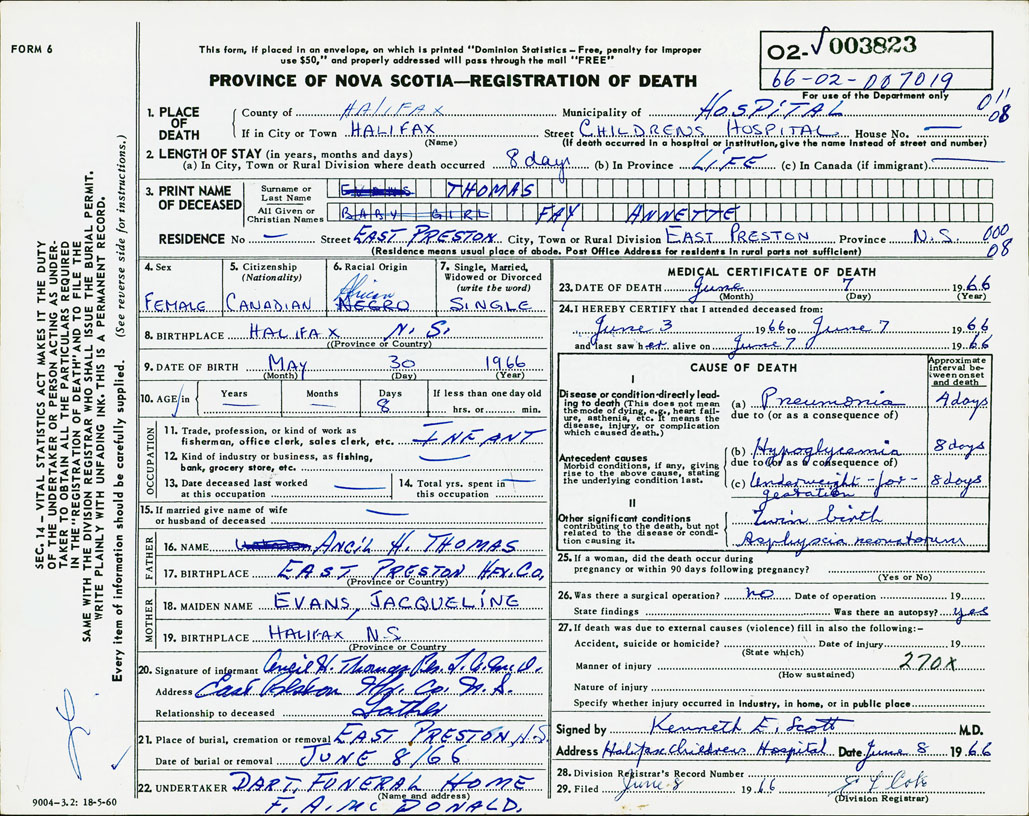 FORM 6
This form, if placed in an envelope, on which is printed "Dominion Statistics – Free, penalty for improper
use $50," and properly addressed will pass through the mail "FREE"
PROVINCE OF NOVA SCOTIA—REGISTRATION OF DEATH
02- 003823
66-02-007019
For use of the Department only
011
08
1. PLACE OF DEATH County of HALIFAX Municipality of HOSPITAL
If in City or Town HALIFAX Street CHILDRENS HOSPITAL House No. —
(Name) (If death occurred in a hospital or institution, give the name instead of street and number)
2. LENGTH OF STAY (in years, months and days)
(a) In City, Town or Rural Division where death occurred 8 days (b) In Province LIFE (c) In Canada (if immigrant) —
3. PRINT NAME OF DECEASED Surname or Last Name EVANS THOMAS
All Given or Christian Names BABY GIRL FAY ANNETTE
RESIDENCE No — Street EAST PRESTON City, Town or Rural Division EAST PRESTON Province N.S. 000
08
(Residence means usual place of abode. Post Office Address for residents in rural parts not sufficient)
4. Sex FEMALE
5. Citizenship (Nationality) CANADIAN
6. Racial Origin African NEGRO
7. Single, Married, Widowed or Divorced (write the word) SINGLE
8. BIRTHPLACE HALIFAX N.S.
(Province or Country)
9. DATE OF BIRTH MAY 30 1966
(Month) (Day) (Year)
10. AGE in Years — Months — Days 8 If less than one day old
hrs. or min.
OCCUPATION
11. Trade, profession, or kind of work as
fisherman, office clerk, sales clerk, etc. INFANT
12. Kind of industry or business, as fishing,
bank, grocery store, etc. —
13. Date deceased last worked
at this occupation —
14. Total yrs. spent in
this occupation —
15. If married give name of wife
or husband of deceased —
FATHER
16. NAME ANCIL H. THOMAS
17. BIRTHPLACE EAST PRESTON HFX. CO,
(Province or Country)
MOTHER
18. MAIDEN NAME EVANS, JACQUELINE
19. BIRTHPLACE HALIFAX N.S
(Province or Country)
20. Signature of informant Ancil H. Thomas
Address East Preston Hfx. Co. N.S.
Relationship to deceased Father
21. Place of burial, cremation or removal EAST PRESTON N.S
Date of burial or removal JUNE 8/66
22. UNDERTAKER DART. FUNERAL HOME
(Name and address)
F. A. MC DONALD.
MEDICAL CERTIFICATE OF DEATH
23. DATE OF DEATH June 7 1966
(Month) (Day) (Year)
24. I HEREBY CERTIFY that I attended deceased from:
June 3 1966 to June 7 1966
and last saw her alive on June 7 1966
CAUSE OF DEATH
Approximate interval between onset and death
I
Disease or condition directly leading to death (This does not mean the mode of dying, e.g., heart failure, asthenia, etc. It means the disease, injury, or complication which caused death.)
(a) Pneumonia 4 days
due to (or as a consequence of)
Antecedent causes
Morbid conditions, if any, giving rise to the above cause, stating the underlying condition last.
(b) Hypoglycemia 8 days
due to (or as a consequence of)
(c) Underweight-for-gestation 8 days
II
Other significant conditions
contributing to the death, but not related to the disease or condition causing it.
Twin birth
Asphyxia neonatorum
25. If a woman, did the death occur during
pregnancy or within 90 days following pregnancy?
(Yes or No)
26. Was there a surgical operation? no Date of operation 19
State findings Was there an autopsy? yes
27. If death was due to external causes (violence) fill in also the following:-
Accident, suicide or homicide? Date of injury 19
(State which)
Manner of injury 270X
(How sustained)
Nature of injury
Specify whether injury occurred in industry, in home, or in public place
Signed by Kenneth E. Scott M.D.
Address Halifax Childrens Hospital Date June 8 1966
28. Division Registrar's Record Number
29. Filed June 8 1966
(Division Registrar)
SEC. 14 – VITAL STATISTICS ACT MAKES IT THE DUTY
OF THE UNDERTAKER OR PERSON ACTING AS UNDER-
TAKER TO OBTAIN ALL THE PARTICULARS REQUIRED
IN THE "REGISTRATION OF DEATH" AND TO FILE THE
SAME WITH THE DIVISION REGISTRAR WHO SHALL ISSUE THE BURIAL PERMIT.
WRITE PLAINLY WITH UNFADING INK. THIS IS A PERMANENT RECORD.
Every item of information should be carefully supplied. (See reverse side for instructions.)
9004–3.2: 18-5-60